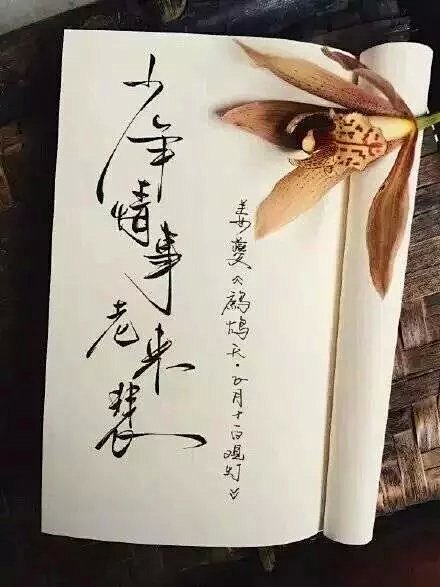 少年情事老来悲
姜夔《鹧鸪天·正月十一日观灯♡